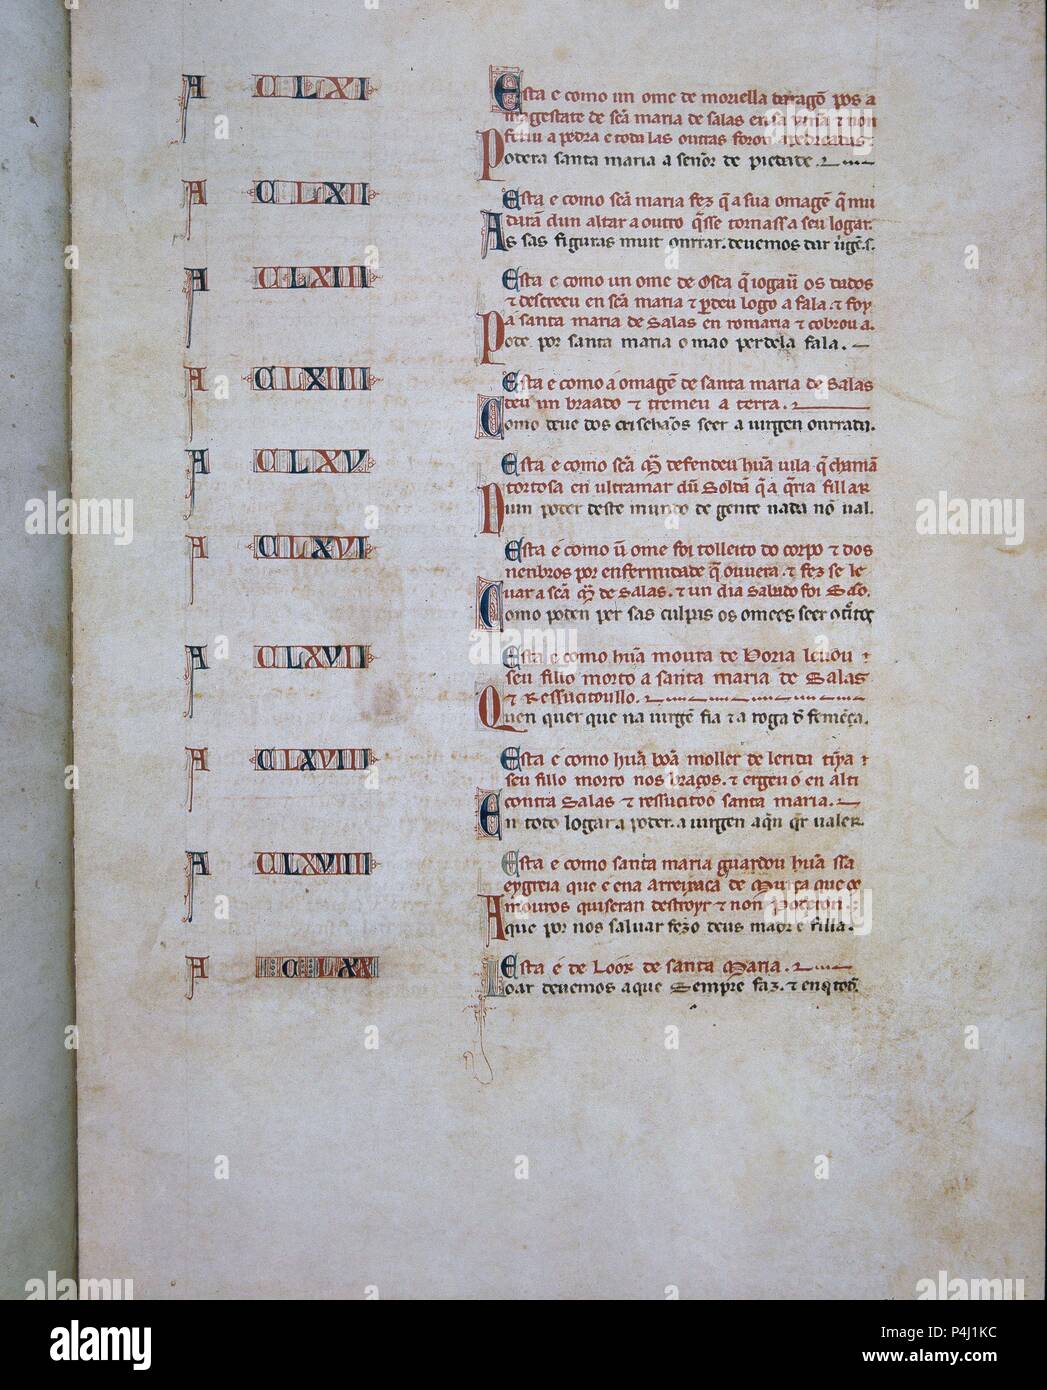 A CLXI
Esta e como un ome de moriella darragõ pos a
magestate de sc̃a maria de salas en sa vin̄a ⁊ non
feriu a pedra e todalas outras foron apedreadas.
Podera santa maria a sen̄or de piedade.
A CLXII
Esta e como sc̃a maria fez q̃ a sua omagẽ q̃ mu
daran dun altar a outro q̃sse tornass a seu logar.
As sas figuras muit onrrar. deuemos dar uigẽ.s.
A CLXIII
Esta e como un ome de Osca q̃ iogaua os dados
⁊ descreeu en sc̃a maria ⁊ ꝑdeu logo a fala. ⁊ foy
a santa maria de Salas en romaria ⁊ cobrou a.
Pode por santa maria o mao perdela fala.
A CLXIIII
Esta e como a omagẽ de santa maria de Salas
deu un braado ⁊ tremeu a terra.
Como deue dos creschãos seer a uirgen onrrada.
A CLXV
Esta e como sc̃a Mª defendeu hũa uila q̃ chamã
tortosa en ultramar dũ Soldã q̃ a q̃ria fillar
Nun poder deste mundo de gente nada nõ ual.
A CLXVI
Esta e como ũ ome foi tolleito do corpo ⁊ dos
nenbros por enfermidade q̃ ouuera. ⁊ fez se le
uar a sc̃a Mª de Salas. ⁊ un dia sabado foi são.
Como poden per sas culpas os omees seer
A CLXVII
Esta e como hũa moura de Boria leuou
seu fillo morto a santa maria de Salas
⁊ Ressucitoullo.
Quen quer que na uirgẽ fia ⁊ a roga d̃ femẽça.
A CLXVIII
Esta e como hũa bõa moller de lerida
seu fillo morto nos braços. ⁊ ergeu o en alti
contra Salas ⁊ ressucitoo santa maria.
En todo logar a poder. a uirgen a q̃n q̃r ualer.
A CLXVIIII
Esta e como santa maria guardou hũa ssa
eygreia que e ena arreixaca de Murça que os
mouros quiseran destroyr ⁊ non poderon.
A que por nos saluar fezo deus madr e filla.
A CLXX
Esta e de Loor de santa Maria.
Loar deuemos a que sempre faz. ⁊ en
alamy
www.alamy.com
Image ID: P4J1KC